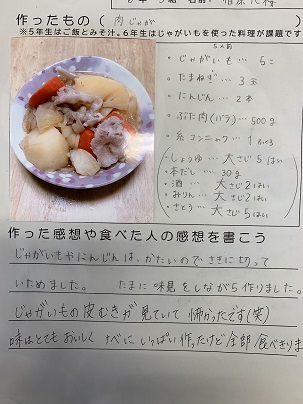 作ったもの（ 肉じゃが ）
※5年生はご飯とみそ汁。6年生はじゃがいもを使った料理が課題です
5人前
・じゃがいも … 5こ
・たまねぎ … 3玉
・にんじん … 2本
・ぶた肉(バラ) … 500g
・糸コンニャク … 1
・しょうゆ … 大さじ5はい
・本だし … 30g
・酒 … 大さじ2はい
・みりん … 大さじ2はい
・さとう … 大さじ5はい
作った感想や食べた人の感想を書こう
じゃがいもやにんじんは、かたいのでさきに切って
いためました。 たまに味見をしながら作りました。
じゃがいもの皮むきが見ていて怖かったです(笑)
味はとてもおいしく なべにいっぱい作ったけど全部食べきりま